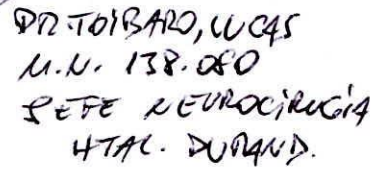 DR. TOIBARO, LUCAS
M.N. 138.080
JEFE NEUROCIRUGÍA
HTAL. DURAND.